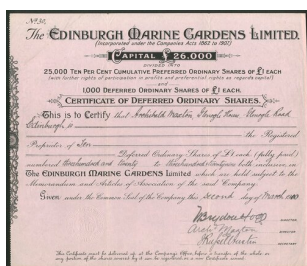 No. 30.
The EDINBURGH MARINE GARDENS LIMITED.
(Incorporated under the Companies Acts 1862 to 1907)
CAPITAL £26,000
DIVIDED INTO
25,000 TEN PER CENT CUMULATIVE PREFERRED ORDINARY SHARES OF £1 EACH
(with further rights of participation in profits and preferential rights as regards capital)
and
1,000 DEFERRED ORDINARY SHARES OF £1 EACH.
CERTIFICATE OF DEFERRED ORDINARY SHARES.
This is to Certify that Archibald Road
Edinburgh is the Registered
Proprietor of Ten
Deferred Ordinary Shares of £1 each (fully paid)
numbered to both inclusive, in
The EDINBURGH MARINE GARDENS Limited which are held subject to the
Memorandum and Articles of Association of the said Company.
Given under the Common Seal of the Company this second day of March
DIRECTOR
DIRECTOR
SECRETARY
This Certificate must be delivered up, at the Company's Office before a transfer of the whole or
any portion of the shares covered by it can be registered or a new Certificate issued.